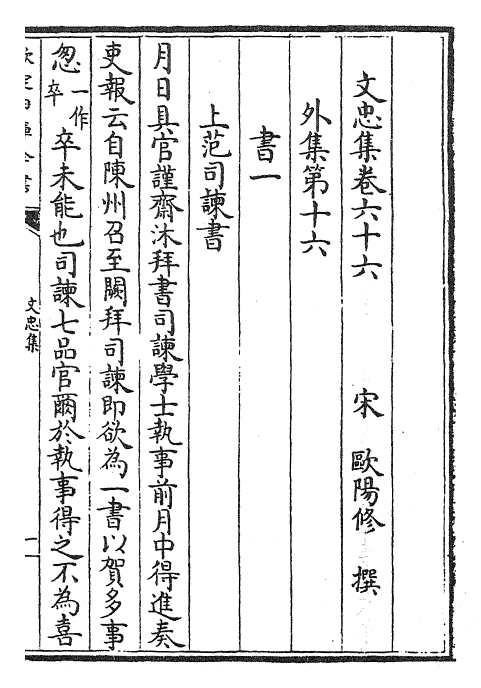 文忠集卷六十六 宋 歐陽修 撰
外集第十六
書一
上范司諫書
月日具官謹齋沐拜書司諫學士執事前月中得進奏
吏報云自陳州召至闕拜司諫即欲為一書以賀多事
忽一作卒卒未能也司諫七品官爾於執事得之不為喜
文忠集
一